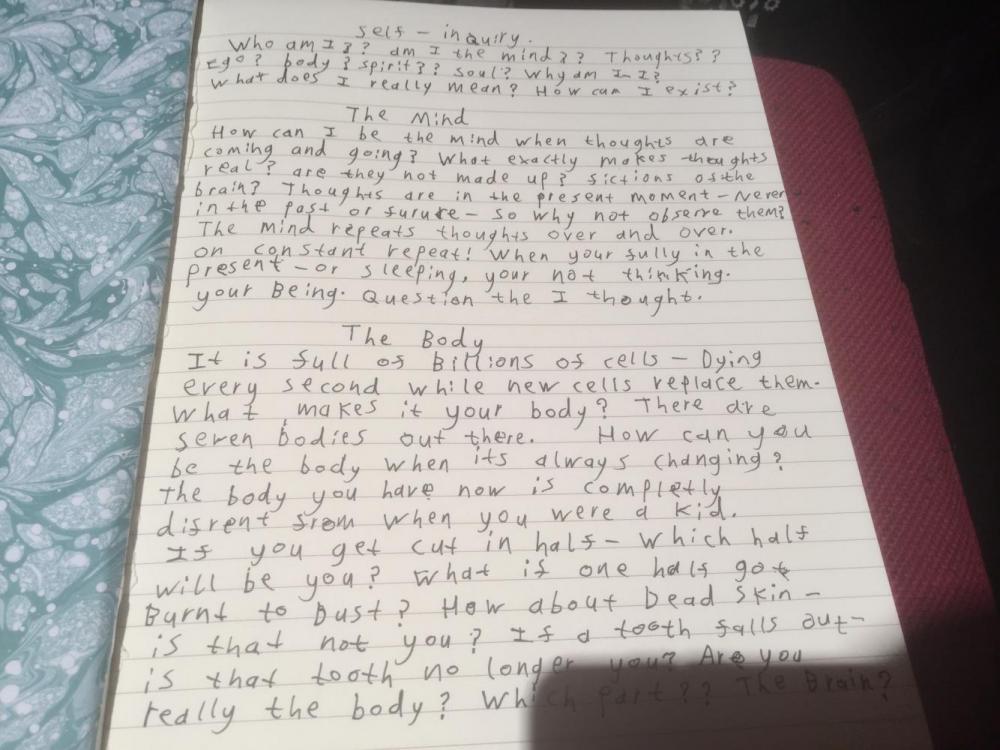 self - inquiry.
Who am I?? am I the mind?? Thoughts??
ego? body? spirit?? soul? Why am I I?
What does I really mean? How can I exist?
The Mind
How can I be the mind when thoughts are
coming and going? What exactly makes thoughts
real? are they not made up? fictions of the
brain? Thoughts are in the present moment - Never
in the past or furure - so why not observe them?
The mind repeats thoughts over and over.
on constant repeat! When your fully in the
present - or sleeping, your not thinking.
your Being. Question the I thought.
The Body
It is full of Billions of cells - Dying
every second while new cells replace them.
What makes it your body? There are
seven bodies out there. How can you
be the body when its always changing?
the body you have now is completly
difrent from when you were a kid.
If you get cut in half - which half
will be you? What if one half got
Burnt to Dust? How about Dead skin -
is that not you? If a tooth falls out -
is that tooth no longer you? Are you
really the body? Which part?? The Brain?